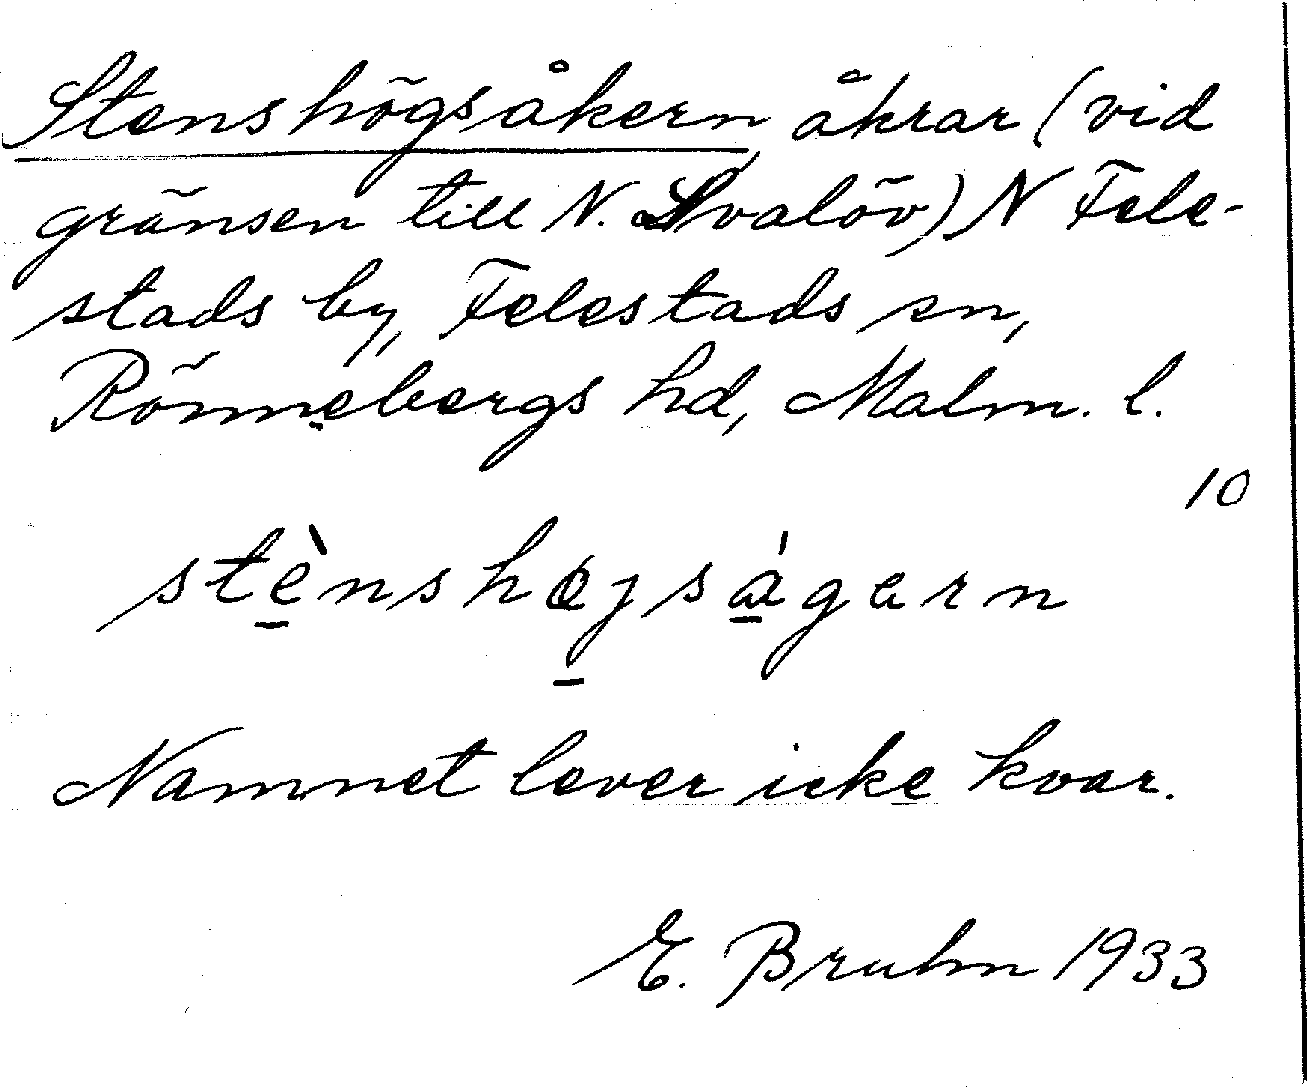 Stenshögsåkern åkrar (vid
gränsen till N. Svalöv) N Fele-
stads by, Felestads sn,
Rönnebergs hd, Malm. l.
10
stènshøjságarn
Namnet lever icke kvar.
E. Bruhn 1933